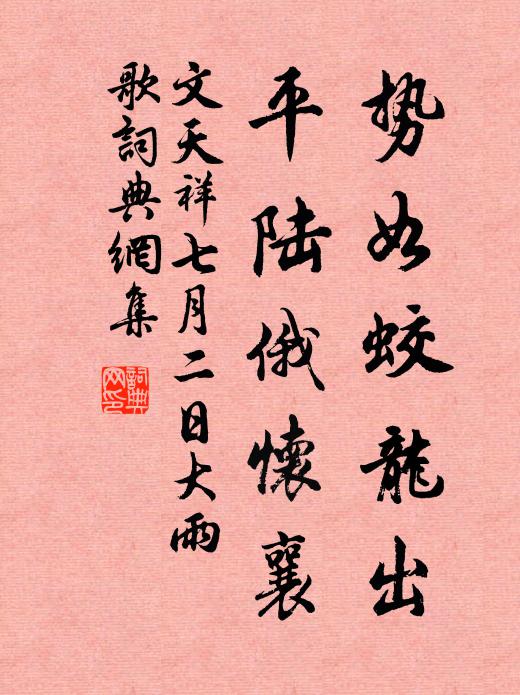 势如蛟龍出
平陆俄懷襄
文天祥七月二日大雨
歌詞典網集
詞典网印